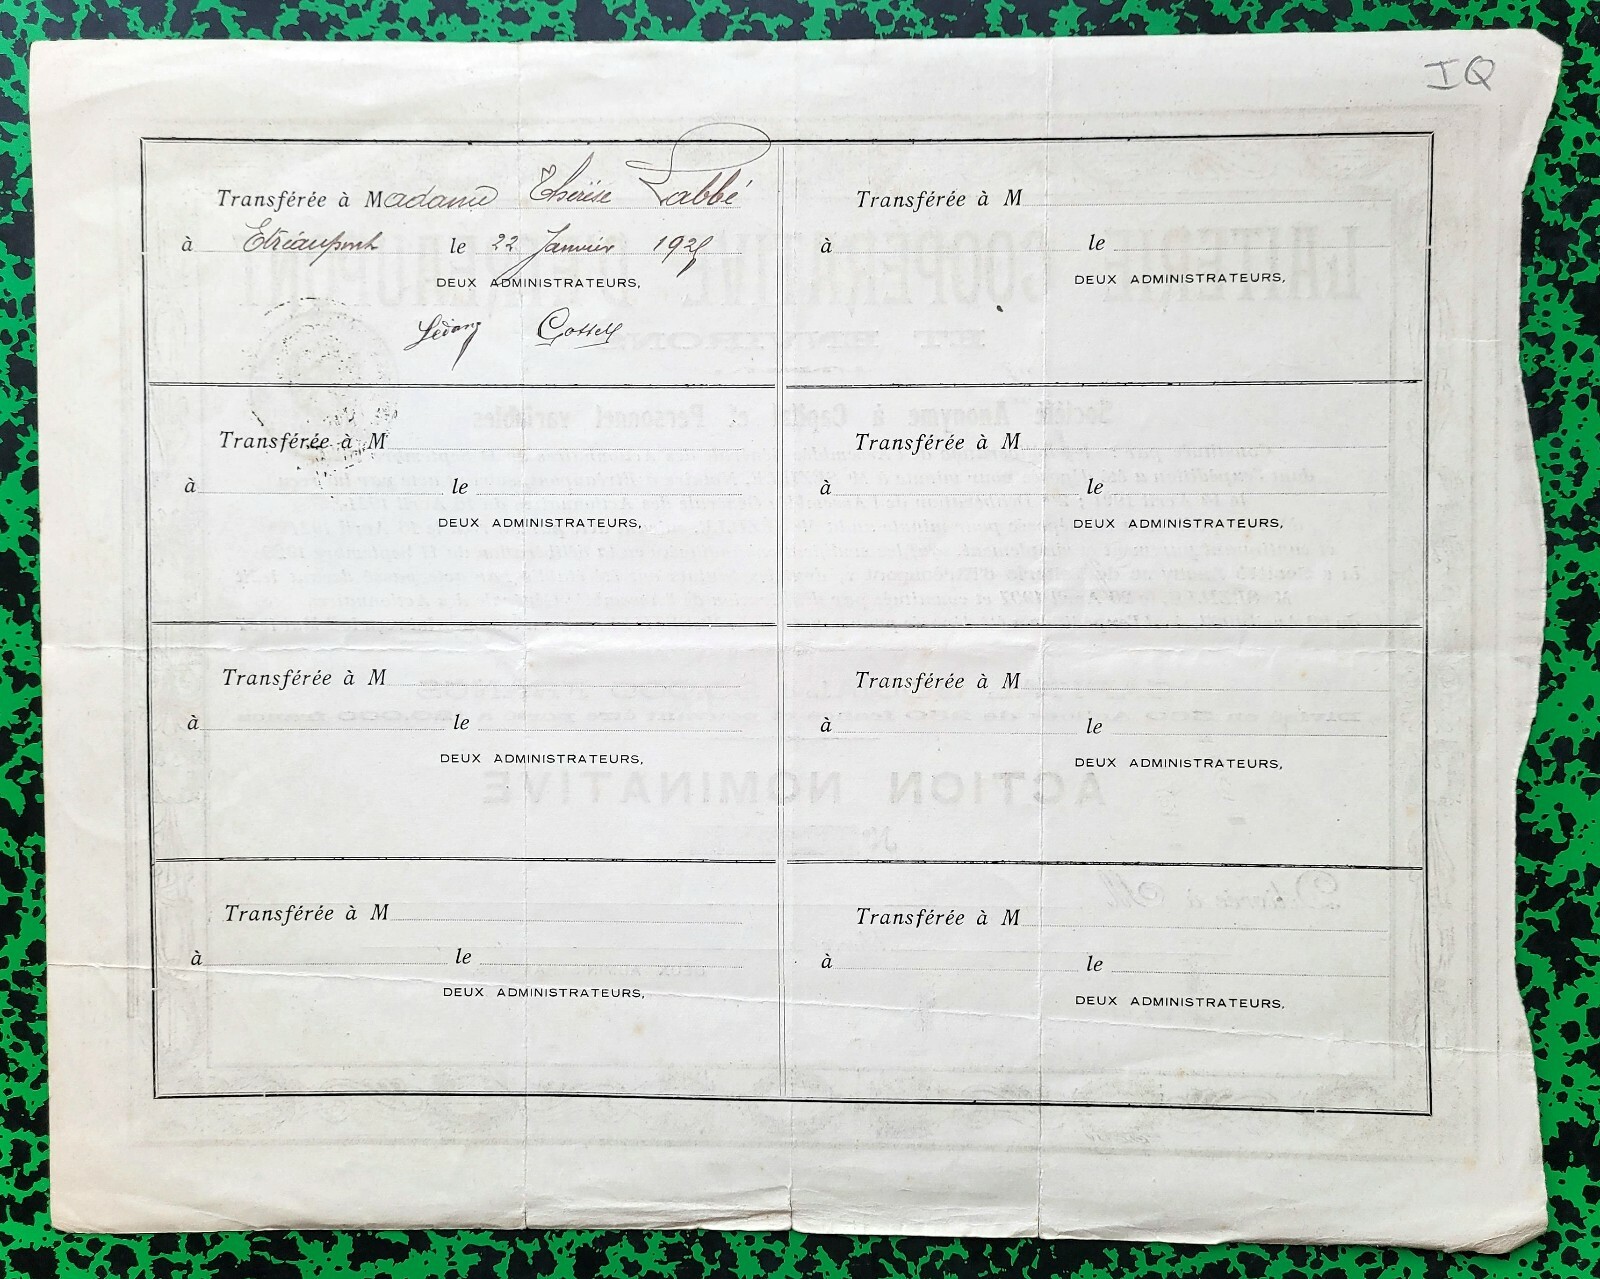 IQ
Transférée à Madame Thérèse Labbé
à Etréaupont le 22 Janvier 1925
DEUX ADMINISTRATEURS,
Transférée à M
à le
DEUX ADMINISTRATEURS,
Transférée à M
à le
DEUX ADMINISTRATEURS,
Transférée à M
à le
DEUX ADMINISTRATEURS,
Transférée à M
à le
DEUX ADMINISTRATEURS,
Transférée à M
à le
DEUX ADMINISTRATEURS,
Transférée à M
à le
DEUX ADMINISTRATEURS,
Transférée à M
à le
DEUX ADMINISTRATEURS,